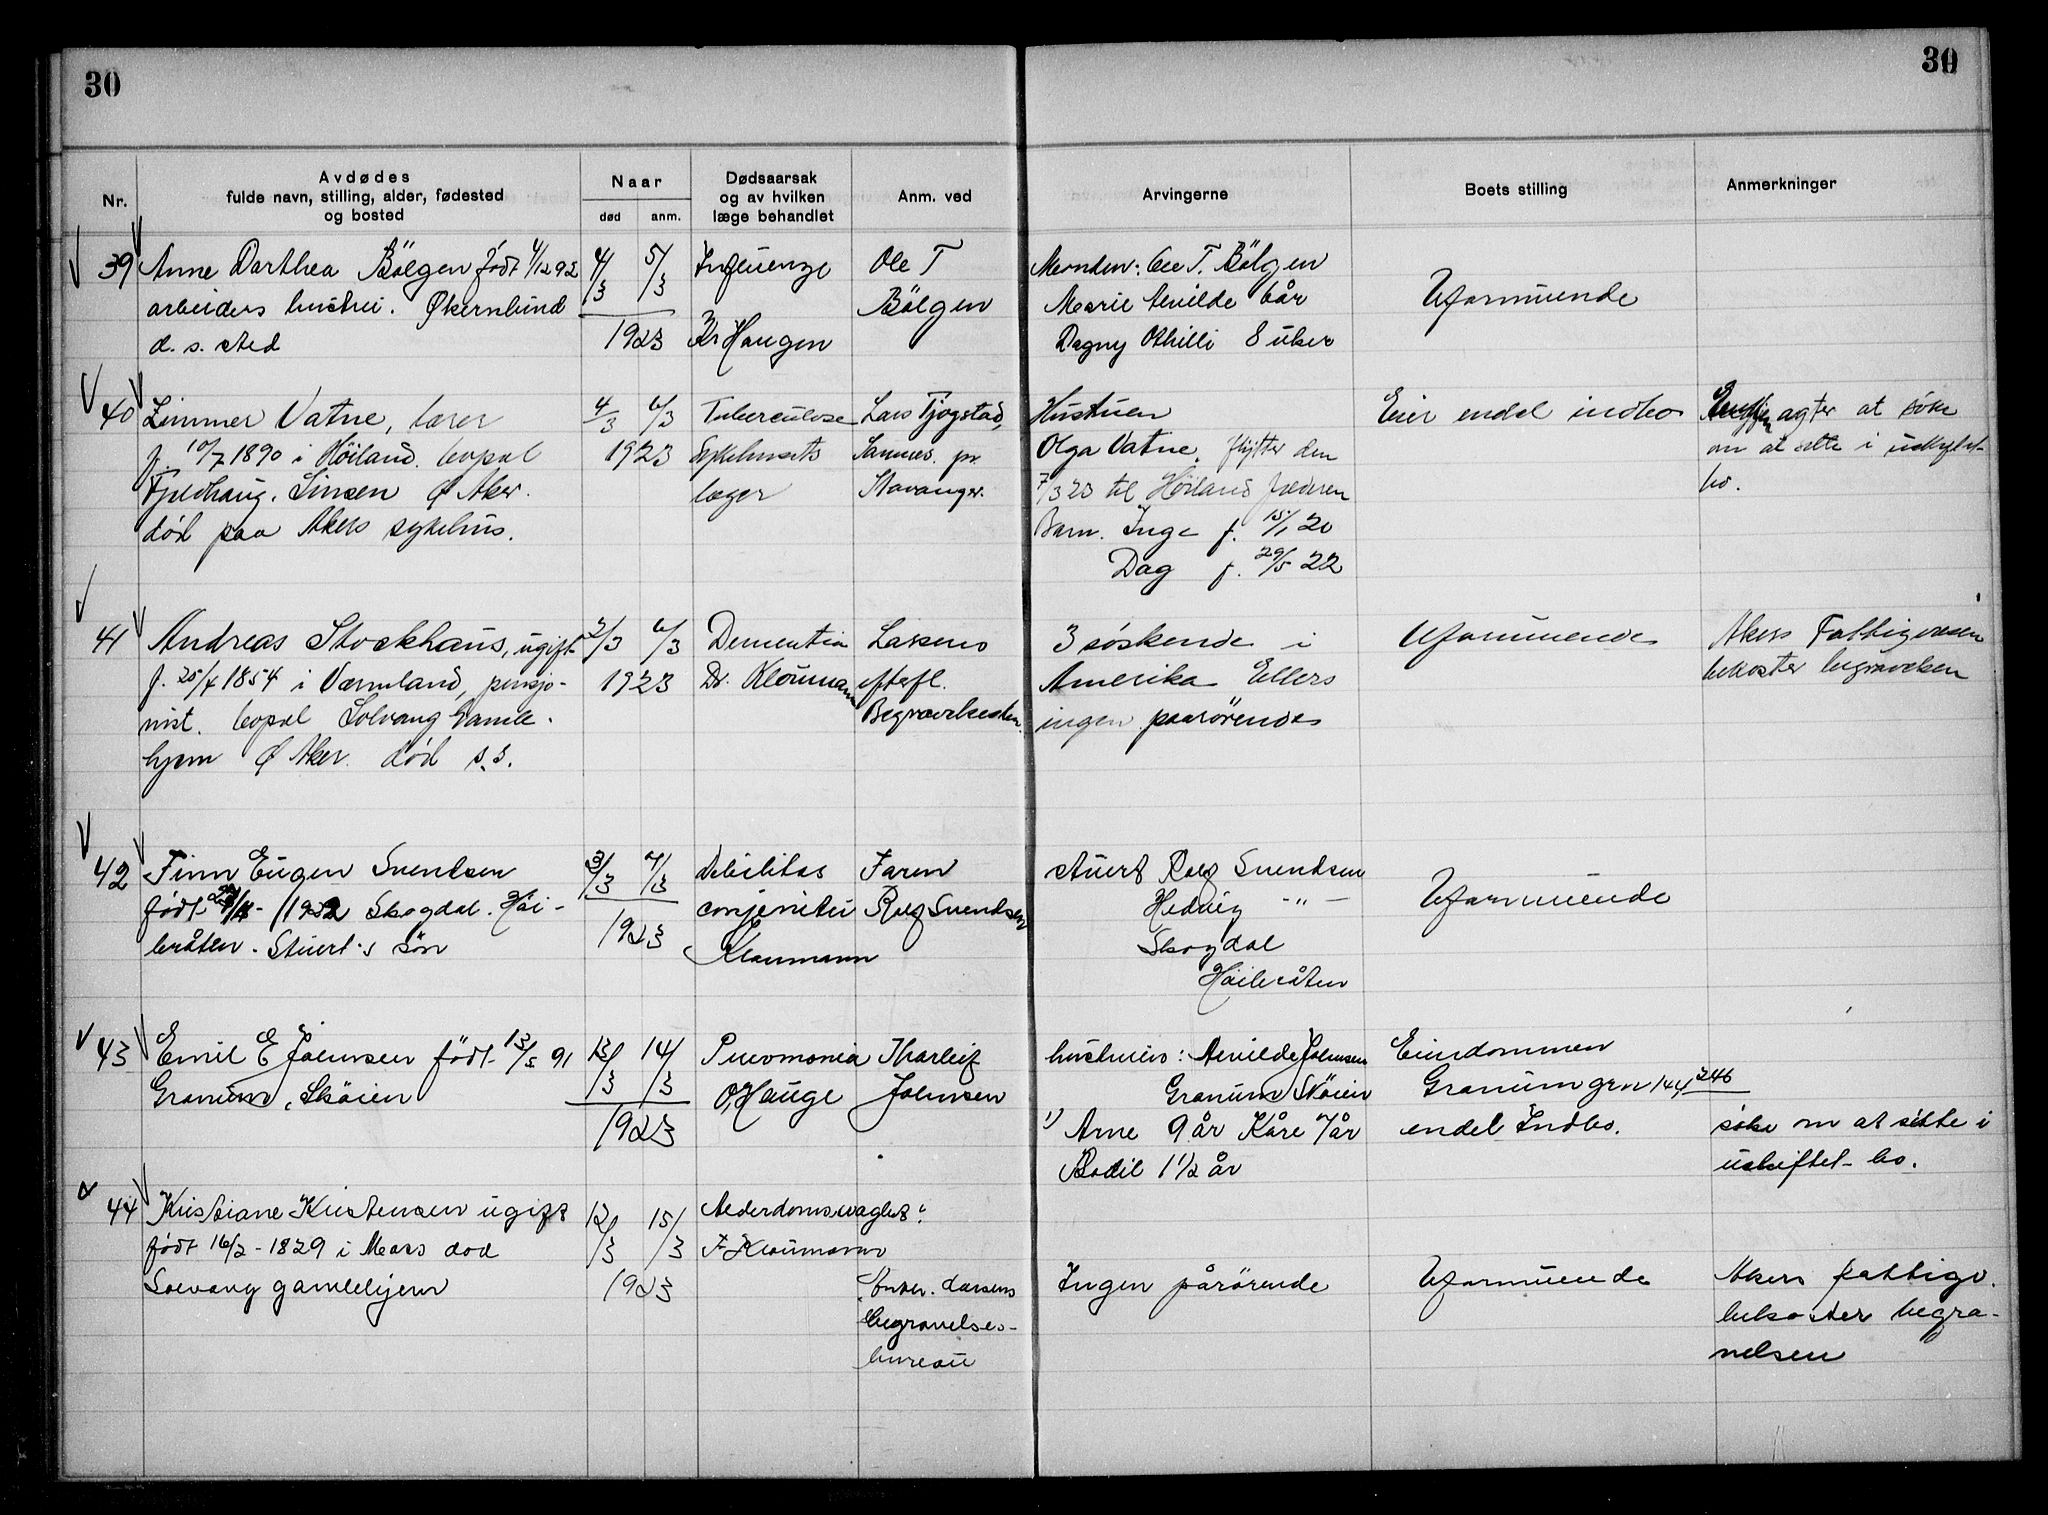 30
30
Nr.
Avdødes
fulde navn, stilling, alder, fødested
og bosted
Naar
død
anm.
Dødsaarsak
og av hvilken
læge behandlet
Anm. ved
Arvingerne
Boets stilling
Anmerkninger
39
Anne Dorthea Bölgen født 4/12 92
arbeiders hustru. Økernlund
d. s. sted
4/3 5/3
1923
Influenza
Kr Haugen
Ole T
Bölgen
Manden: Ole T. Bölgen
Marie Alvilde 6 år
Dagny Othilli 8 uker
Uformuende
40
Zimmer Vatne, lærer
f. 10/7 1890 i Høiland. bopal
Fjeldhaug. Sinsen Ø Aker.
død paa Akers sykehus.
4/3 6/3
1923
Tuberculose
Sykehusets
læger
Lars Tjøgstad,
Sannes. pr.
Stavanger.
Hustruen
Olga Vatne. flytter den
7/3 23 til Høiland
Barn. Inge f. 15/1 20
Dag f. 29/5 22
Eier endel indbo
agter at søke
om at sitte i uskiftet
bo.
41
Andreas Stockhaus, ugift
f. 25/4 1854 i Værmland, pensjo-
nist. bopal Solvang Gamle-
hjem Ø Aker. død s.s.
2/3 6/3
1923
Dementia
Dr. Kloumann
Larsens
efterfl.
3 søskende i
Amerika Ellers
ingen paarørende
Uformuende
Akers Fattigvæsen
bekoster begravelsen
42
Finn Eugen Svendsen
født Skogdal. Häi-
bråten. Stuert's sön
3/3 7/3
1923
Debilitas
conjenita
Kloumann
Faren
Rolf Svendsen
Stuert Rolf Svendsen
Hedvig -"-
Skogdal
Häibråten
Uformuende
43
Emil E Johnsen født 13/5 91
Granum, Skøien
13/3 14/3
1923
Pneumonia
O, Hauge
Tharleif
Johnsen
hustruen: Alvilde Johnsen
Granum Skøien
1) Arne 9 år Kåre 7 år
Bodil 1 1/2 år
Eiendommen
Granum grn 144 246
endel Indbo.
søke om at sitte i
uskiftet bo.
44
Kristiane Kristensen ugift
født 16/2-1829 i Moss død
Solvang gamlehjem
12/3 15/3
1923
Alderdomsvaghet
F. Kloumann
Larsens
begravelses-
bureau
Ingen pårörende
Uformuende
Akers fattigv.
bekoster begra-
velsen